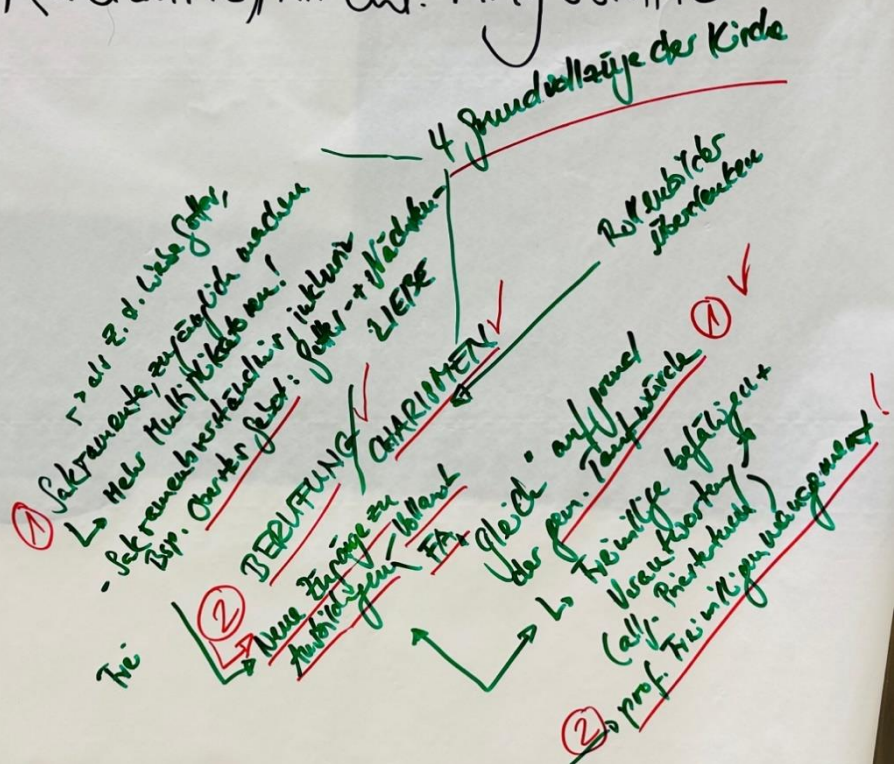 4 Grundvollzüge der Kirche
Rollenbilder
überdenken
↳ als Z. d. Liebe Gottes,
① Sakramente, zugänglich machen
↳ Mehr Multiplikatoren!
- Sakramentsverständnis, inklusiv
Bsp. Oberster Gebot: Gottes- + Nächsten-
LIEBE
BERUFUNG / CHARISMEN
② Neue Zugänge zu
Ausbildungen / Vollamt
FA
gleich" aufgrund
der gem. Taufwürde ①
↳ Freiwillige befähigen +
Verantwortung
(allg. Priestertum)
② prof. Freiwilligenmanagement!
Frei